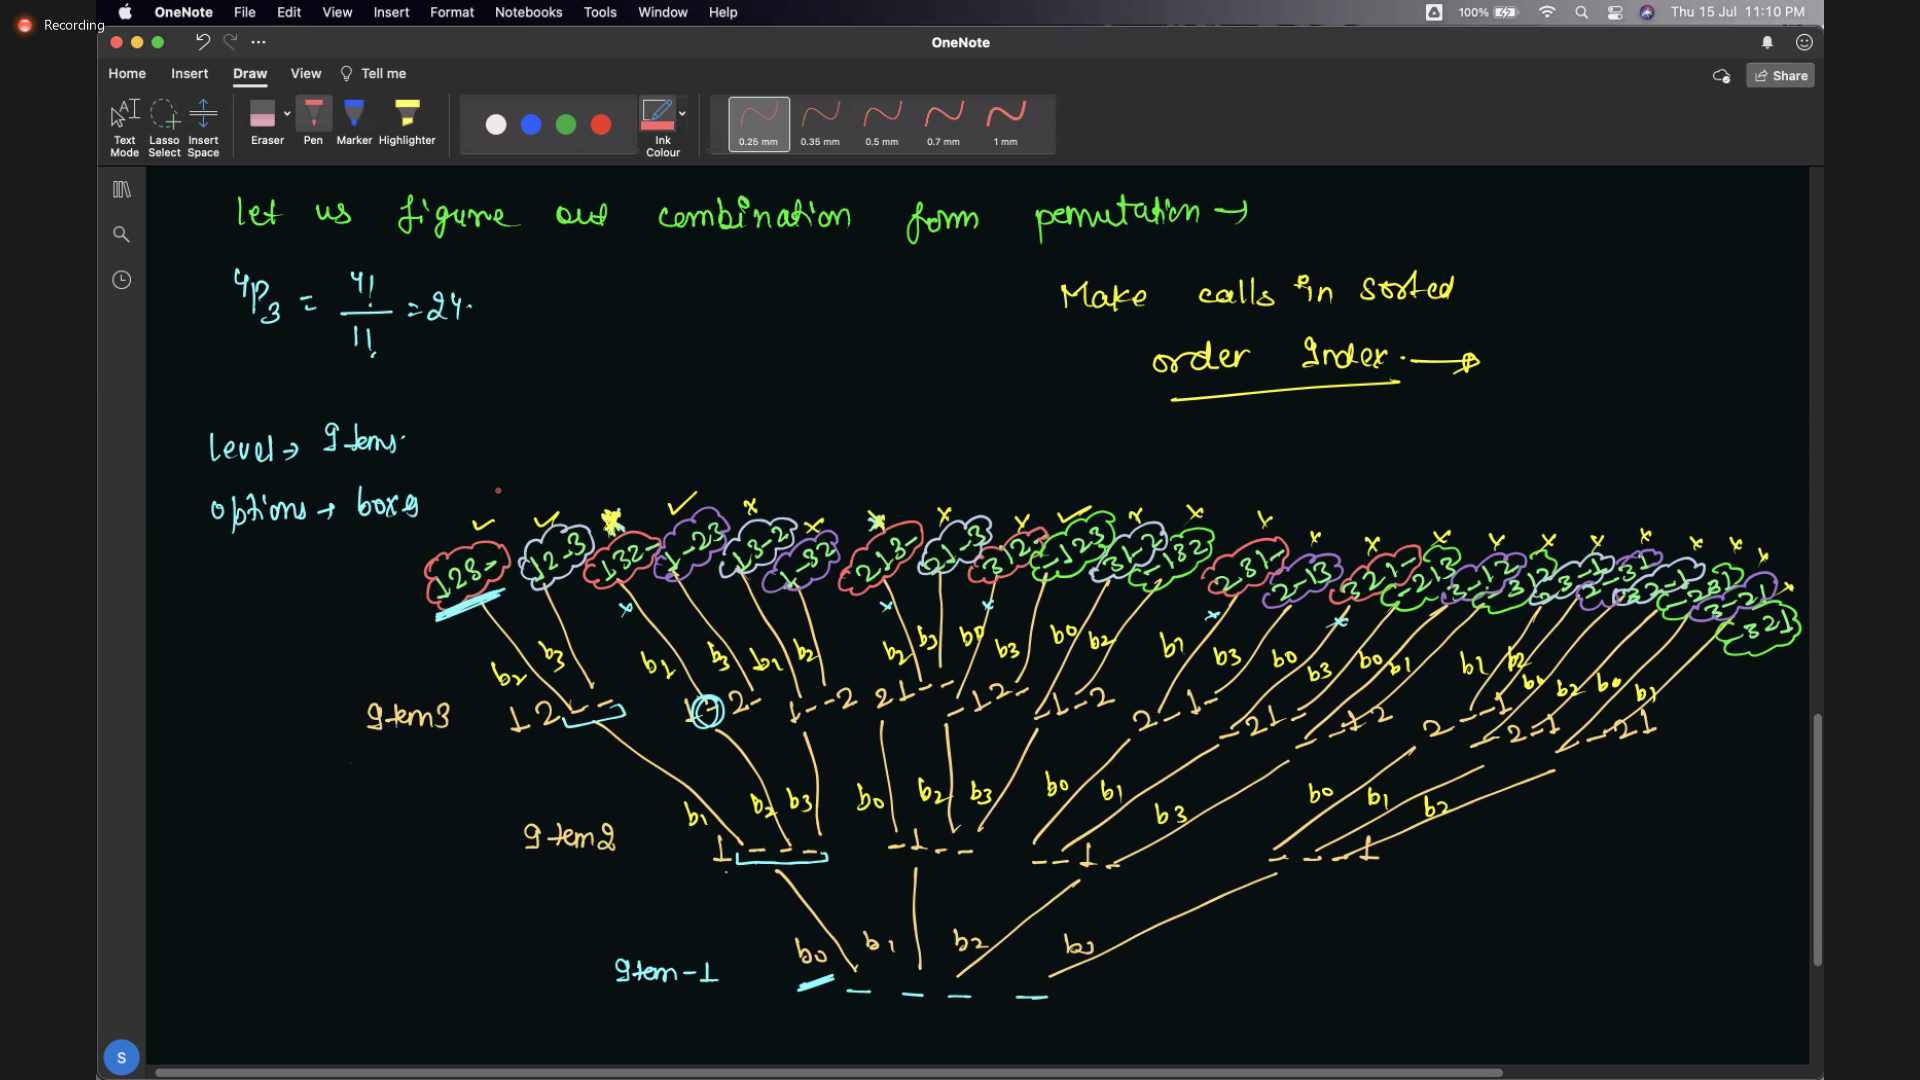 Recording
OneNote File Edit View Insert Format Notebooks Tools Window Help 100% Thu 15 Jul 11:10 PM
OneNote
Home Insert Draw View Tell me Share
Text Mode Lasso Select Insert Space Eraser Pen Marker Highlighter Ink Colour 0.25 mm 0.35 mm 0.5 mm 0.7 mm 1 mm
let us figure out combination form pemutation →
4P3 = 4! / 1! = 24.
Make calls in sorted
order Index. →
level → Items.
options → boxes
123- 12-3 132- 1-23 13-2 1-32 213- 21-3 312- -123 31-2 -132 231- 2-13 321- -213 3-12 -312 23-1 2-31 32-1 -231 3-21 -321
b2 b3 b1 b3 b1 b2 b2 b3 b0 b3 b0 b2 b1 b3 b0 b3 b0 b1 b1 b2 b0 b2 b0 b1
Item3 12-- 1-2- 1--2 21-- -12- -1-2 2-1- -21- --12 2--1 -2-1 --21
b1 b2 b3 b0 b2 b3 b0 b1 b3 b0 b1 b2
Item2 1--- -1-- --1- ---1
b0 b1 b2 b3
Item-1 - - - -
S